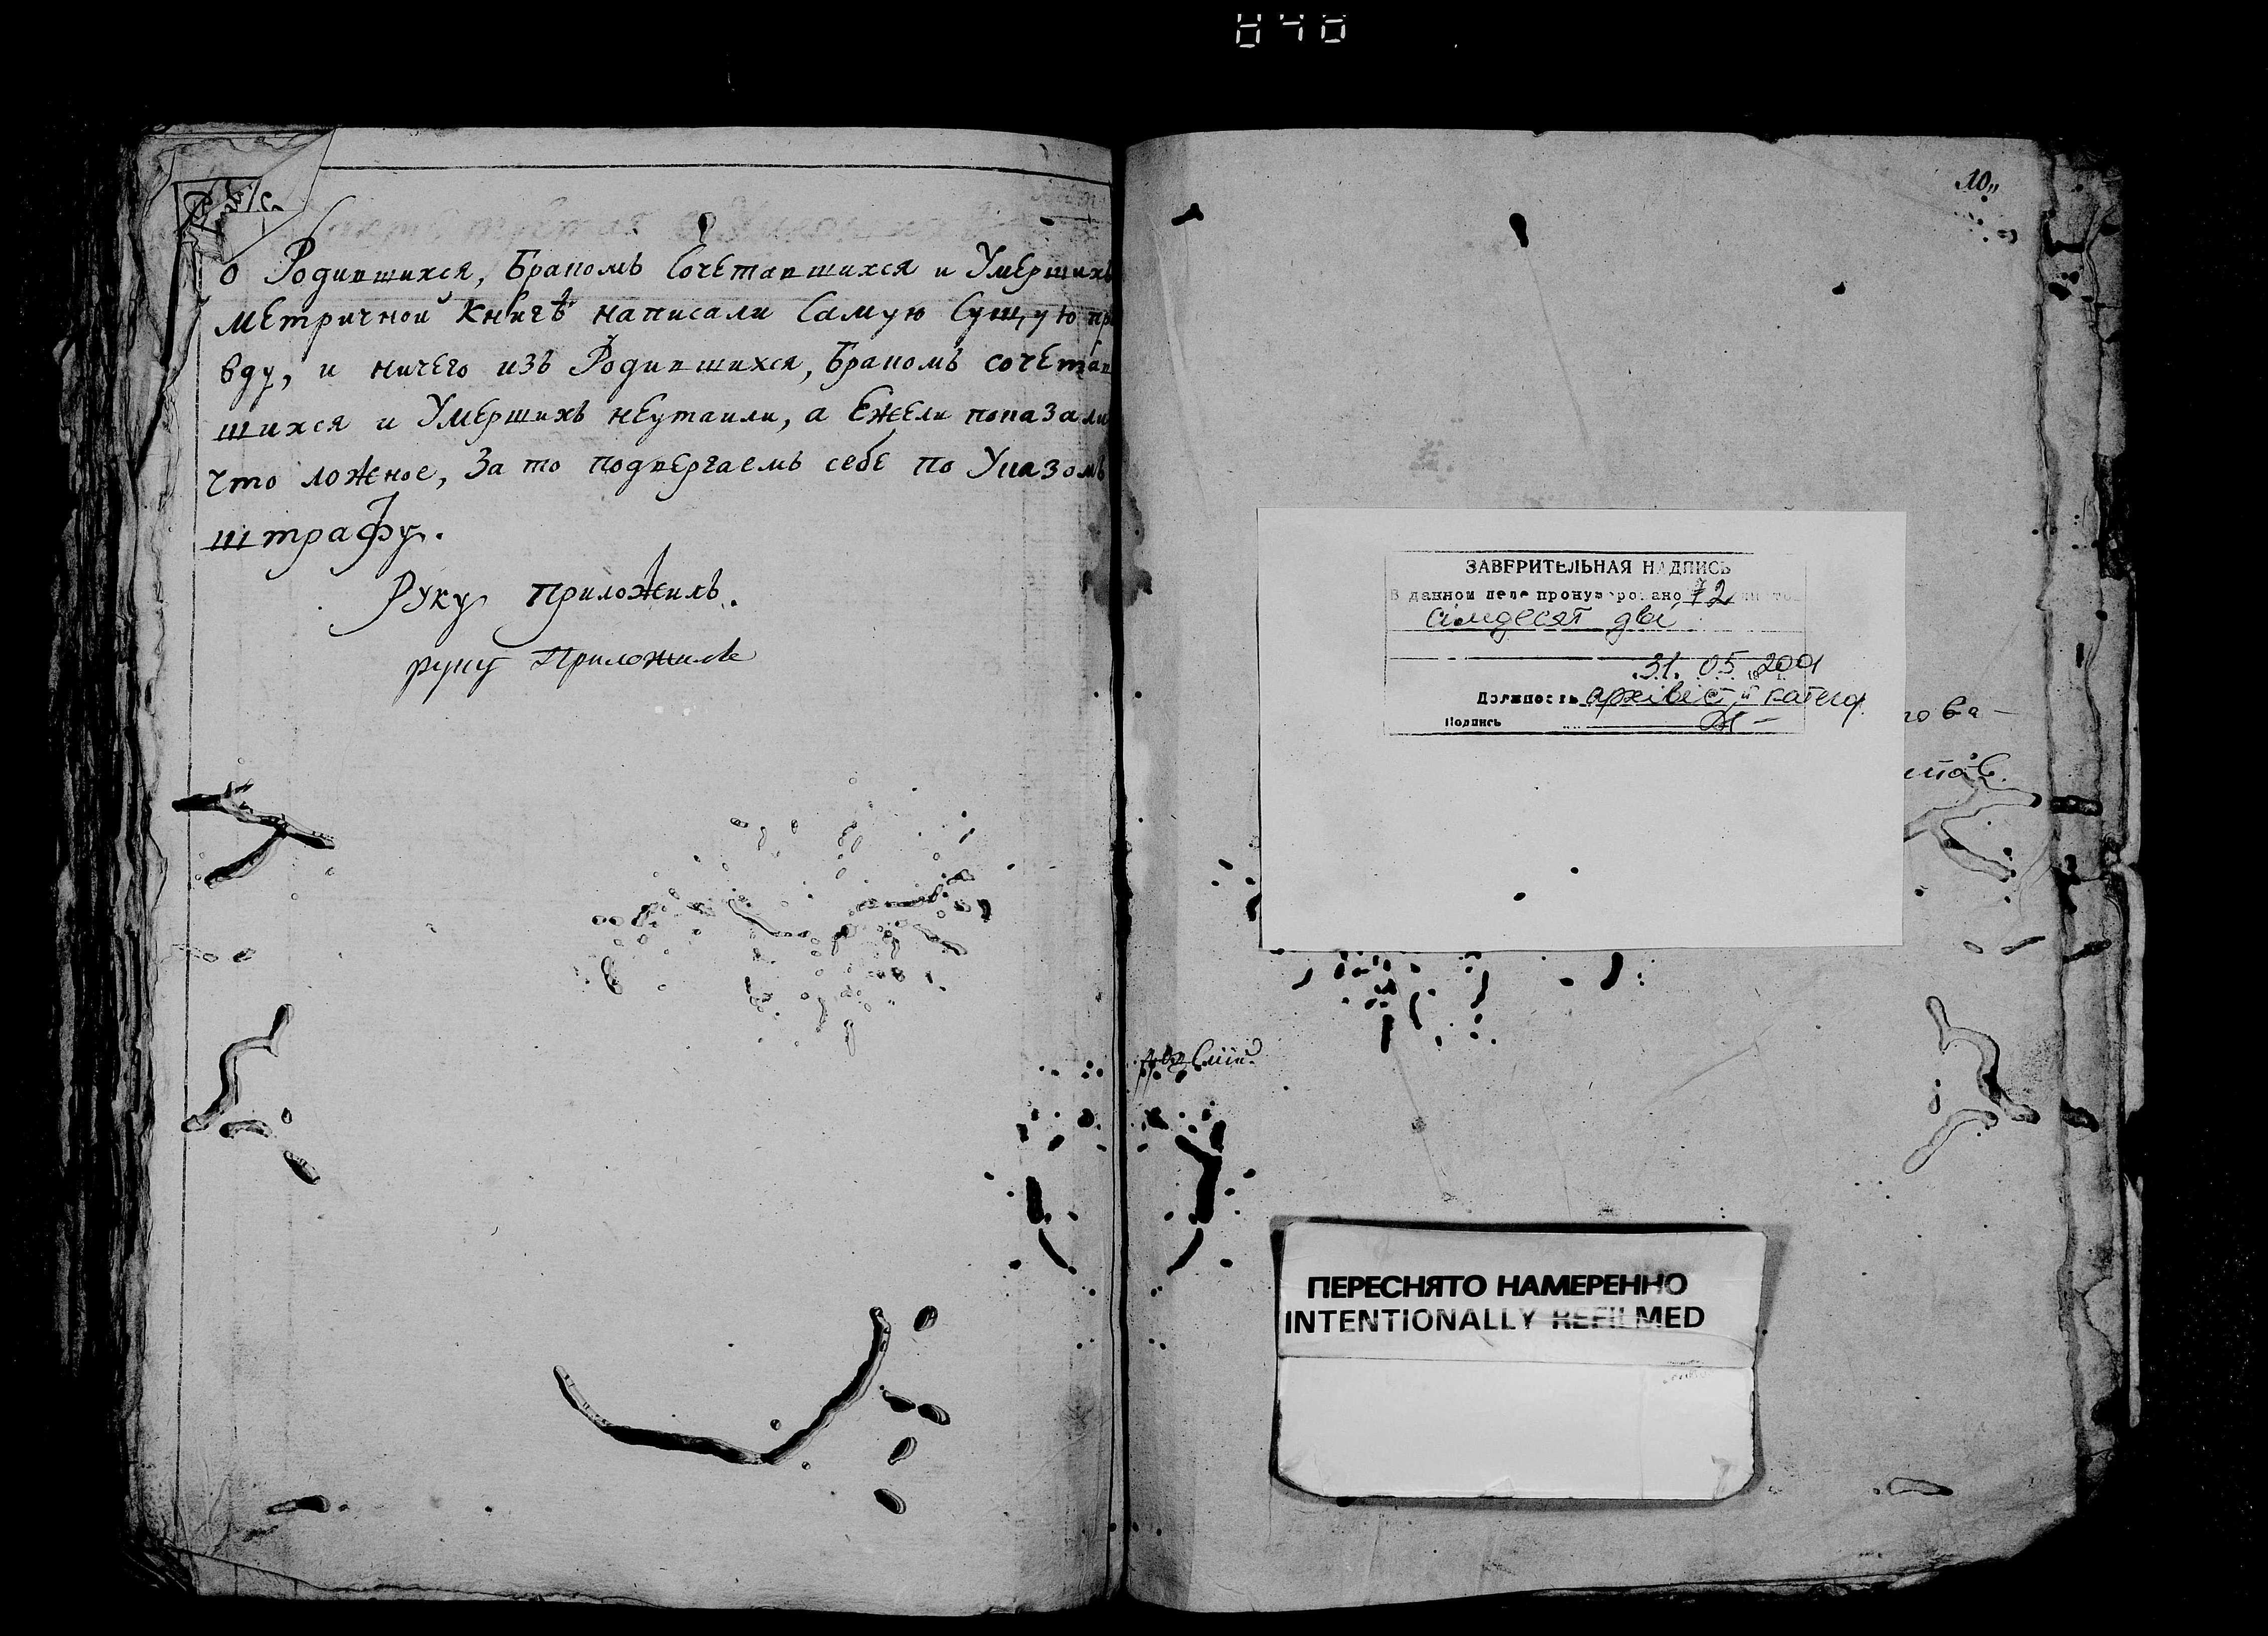 о Родившихся, Бракомъ Сочетавшихся и Умершихъ
метричной Книгѣ написали Самую Сущую пра
вду, и ничего изъ Родившихся, Бракомъ сочетав
шихся и Умершихъ неутаили, а Ежели показали
что ложное, За то подвергаемъ себе по Указомъ
штрафу.
Руку Приложилъ.
руку Приложилъ
10
ЗАВЕРИТЕЛЬНАЯ НАДПИСЬ
В данном деле пронумеровано 72
сімдесят два
31. 05 2001
Должность архівіст II катег.
Подпись
ПЕРЕСНЯТО НАМЕРЕННО
INTENTIONALLY REFILMED